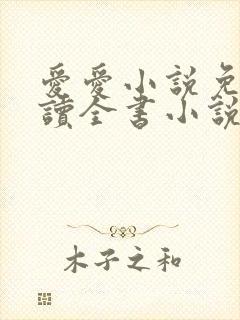 愛愛小說免
讀全書小說
木子之和